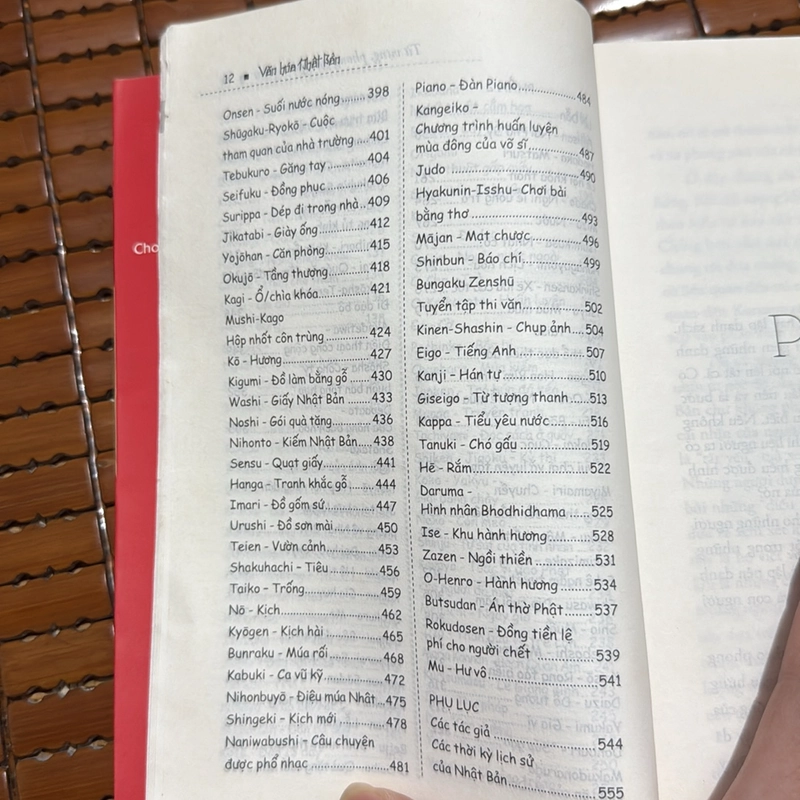 12 ▪ Văn hóa Nhật Bản
Onsen - Suối nước nóng........398
Shūgaku-Ryokō - Cuộc
tham quan của nhà trường....401
Tebukuro - Găng tay..........404
Seifuku - Đồng phục..........406
Surippa - Dép đi trong nhà...409
Jikatabi - Giày ống..........412
Yojōhan - Căn phòng..........415
Okujō - Tầng thượng..........418
Kagi - Ổ/chìa khóa...........421
Mushi-Kago
Hộp nhốt côn trùng...........424
Kō - Hương...................427
Kigumi - Đồ làm bằng gỗ......430
Washi - Giấy Nhật Bản........433
Noshi - Gói quà tặng.........436
Nihonto - Kiếm Nhật Bản......438
Sensu - Quạt giấy............441
Hanga - Tranh khắc gỗ........444
Imari - Đồ gốm sứ............447
Urushi - Đồ sơn mài..........450
Teien - Vườn cảnh............453
Shakuhachi - Tiêu............456
Taiko - Trống................459
Nō - Kịch....................462
Kyōgen - Kịch hài............465
Bunraku - Múa rối............468
Kabuki - Ca vũ kỹ............472
Nihonbuyō - Điệu múa Nhật....475
Shingeki - Kịch mới..........478
Naniwabushi - Câu chuyện
được phổ nhạc................481
Piano - Đàn Piano............484
Kangeiko -
Chương trình huấn luyện
mùa đông của võ sĩ...........487
Judo.........................490
Hyakunin-Isshu- Chơi bài
bằng thơ.....................493
Mājan - Mạt chược............496
Shinbun - Báo chí............499
Bungaku Zenshū
Tuyển tập thi văn............502
Kinen-Shashin - Chụp ảnh.....504
Eigo - Tiếng Anh.............507
Kanji - Hán tự...............510
Giseigo - Từ tượng thanh.....513
Kappa - Tiểu yêu nước........516
Tanuki - Chó gấu.............519
Hē - Rắm.....................522
Daruma -
Hình nhân Bhodhidhama........525
Ise - Khu hành hương.........528
Zazen - Ngồi thiền...........531
O-Henro - Hành hương.........534
Butsudan - Án thờ Phật.......537
Rokudosen - Đồng tiền lệ
phí cho người chết...........539
Mu - Hư vô...................541
PHỤ LỤC
Các tác giả..................544
Các thời kỳ lịch sử
của Nhật Bản.................555
Cho
P